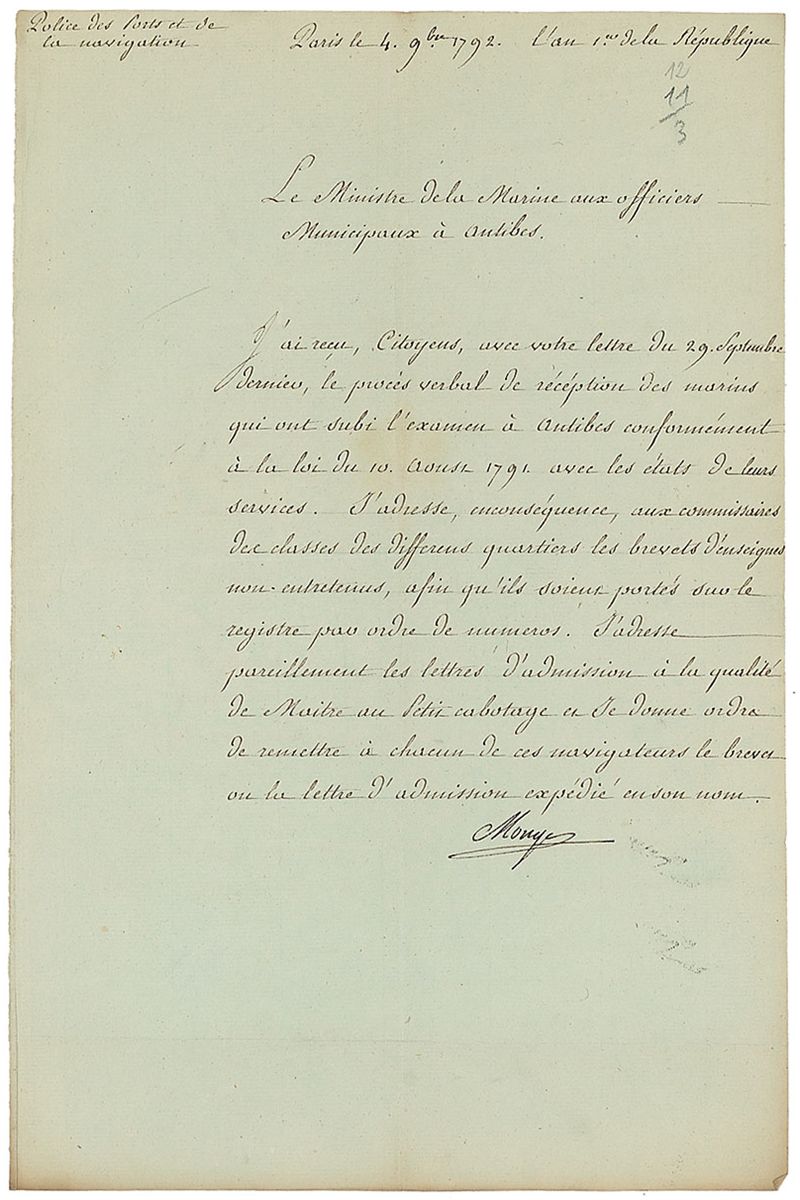 Police des Ports et de
la navigation
Paris le 4. 9bre 1792. l'an 1er de la République
12
11
3
Le Ministre de la Marine aux officiers
Municipaux à Antibes.
J'ai reçu, Citoyens, avec votre lettre du 29. Septembre
dernier, le procès verbal de récéption des marins
qui ont subi l'examen à Antibes conformément
à la loi du 10. Aoust 1791. avec les états de leurs
services. J'adresse, enconséquence, aux commissaires
des classes des differens quartiers les brevets d'enseignes
non-entretenus, afin qu'ils soient portés sur le
registre par ordre de numeros. J'adresse
pareillement les lettres d'admission à la qualité
de Maitre au Petit cabotage et Je donne ordre
de remettre à chacun de ces navigateurs le brevet
ou la lettre d'admission expédié en son nom.
Monge